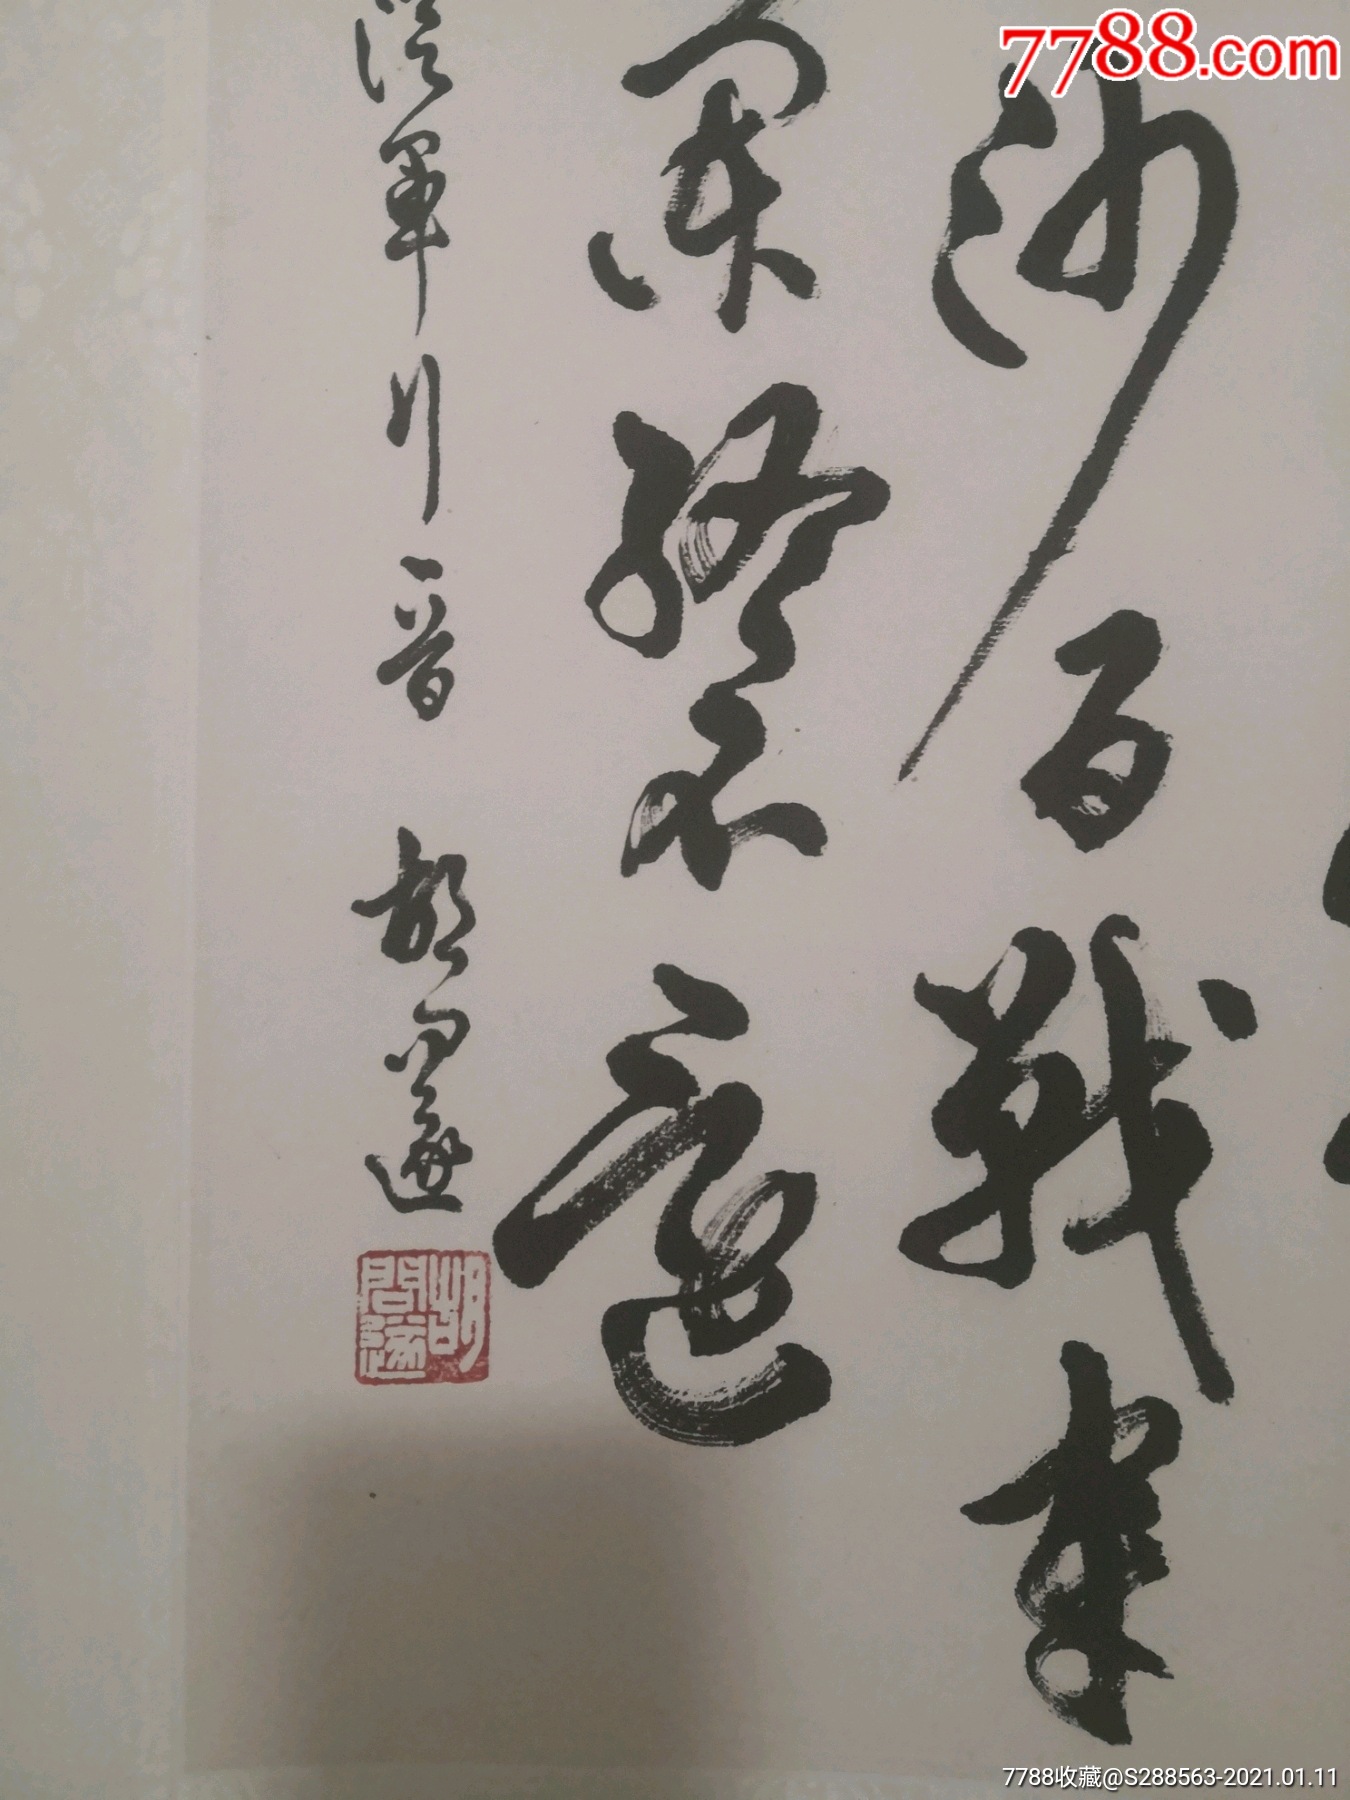 7788.com
沙百戰穿
蘭終不還
從軍行一首 胡問遂
胡問遂
7788收藏@S288563-2021.01.11